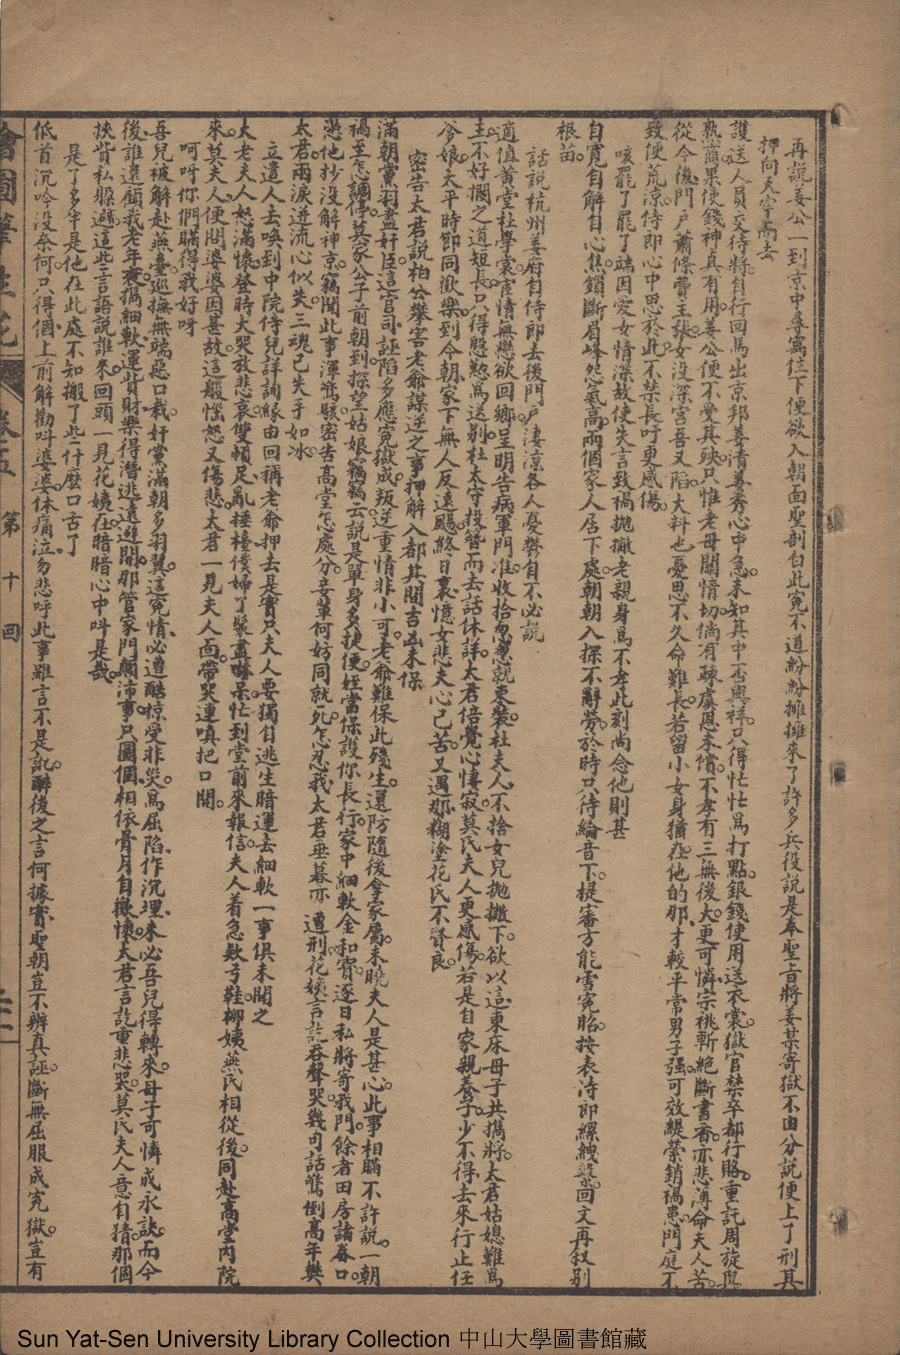 再說姜公一到京中尋寓住下便欲入朝面聖剖白此寃不道紛紛擁擁來了許多兵役說是奉聖旨將姜某寄獄不由分說便上了刑具
押向天牢而去
護送人員交待將自行回馬出京邦姜淸姜秀心中急未知其中否與祥只得忙忙爲打點銀錢使用送衣裳獄官禁卒都行賂重託周旋與
熟商果使錢神真有用姜公便不受其殃只惟老母關情切倘有疎虞恩未償不孝有三無後大更可憐宗祧斬絶斷書香亦悲薄命夫人苦
從今後門戶蕭條費主張女沒深宮吾又陷大料也憂思不久命難長若留小女身猶在他的那才較平常男子强可效緹縈銷禍患門庭不
致便荒凉侍郎心中思於此不禁長吁更感傷
咳罷了罷了端因愛女情深故使失言致禍拋撇老親身爲不孝此刻尚念他則甚
自寬自解自心焦鎖斷眉峰怨氣高兩個家人居下處朝朝入探不辭勞於時只待綸音下提審方能雪寃昭按表侍郎縲絏繫回文再叙別
根苗
話說杭州姜府自侍郎去後門戶淒涼各人憂鬱自不必說
適值黃堂杜學裳宦情無戀欲回鄉呈明告病軍門准收拾怱怱就束裝杜夫人不捨女兒拋撇下欲以這東床母子共攜將太君姑媳難爲
主不好攔之道短長只得慇懃爲送別杜太守投簪而去話休詳太君倍覺心悽寂莫氏夫人更感傷若是自家親養子少不得去來行止任
爹娘太平時節同歡樂到今朝家下無人反遠颺終日裏憶女悲夫心已苦又遇那糊塗花氏不賢良
密告太君說柏公攀害老爺謀逆之事押解入都其間吉凶未保
滿朝黨羽盡奸臣這宮司誣陷多應寃獄成叛逆重情非小可老爺難保此殘生還防隨後拿家屬未曉夫人是甚心此事相瞞不許說一朝
禍至怎調停莫家公子前朝到探望姑娘竊竊云說是單身多捷便姪當保護你長行家中細軟金和寶逐日私將寄我門餘者田房諸眷口
憑他抄沒解神京竊聞此事渾驚駭密告高堂怎處分妾輩何妨同就死怎忍我太君垂暮亦遭刑花姨言訖吞聲哭幾句話驚倒高年樊
太君兩淚迸流心似失三魂已失手如冰
立遣人去喚到中院侍兒詳詢緣由回稱老爺押去是實只夫人要獨自逃生暗運去細軟一事俱未聞之
大老夫人怒滿懷登時大哭放悲哀雙頓足亂捶檯僕婦丫鬟盡嚇呆忙到堂前來報信夫人着急欵弓鞋柳姨燕氏相從後同赴高堂內院
來莫夫人便問婆婆因甚故這般惱怒又傷悲太君一見夫人面帶哭連嗔把口開
呵呀你們瞞得我好呀
吾兒被解赴燕臺巡撫無端惡口栽奸黨滿朝多羽翼這寃情必遭酷掠受非災爲屈陷作沉埋未必吾兒得轉來母子可憐成永訣而今
後誰還顧我老年衰搆細軟運貲財樂得潛逃遠避開那管家門顚沛事只圖個相依骨月自歡懷太君言訖重悲哭莫氏夫人意自猜那個
挾貲私躲避這些言語說誰來回頭一見花姨在暗暗心中叫是哉
是了多年是他在此處不知搬了些什麽口舌了
低首沉吟沒奈何只得個上前解勸叫婆婆休痛泣勿悲呼此事雖言不是訛醉後之言何據實聖朝豈不辨真誣斷無屈服成寃獄豈有
繪圖筆生花 卷五 第十回
Sun Yat-Sen University Library Collection 中山大學圖書館藏